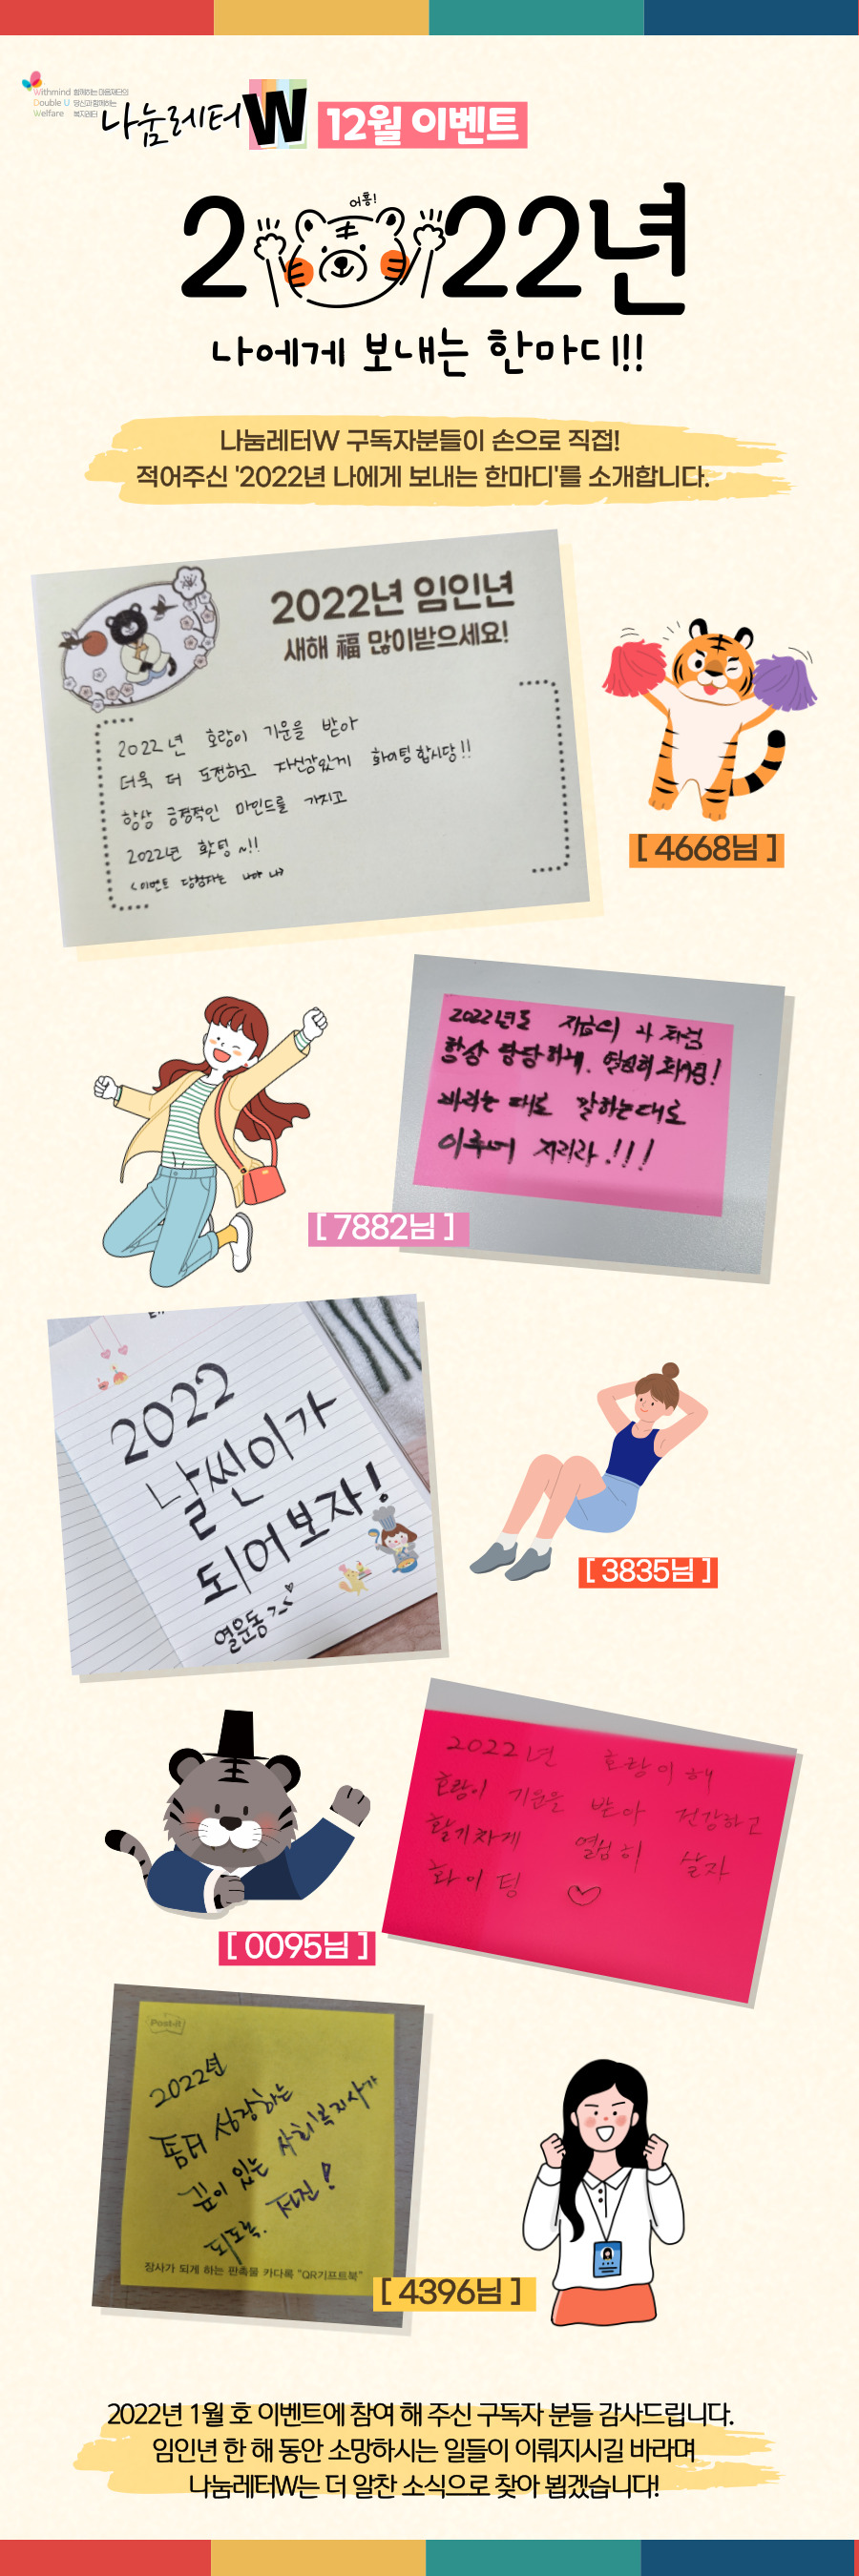 Withmind 함께하는마음재단의
Double U 당신과 함께하는
Welfare 복지레터
나눔레터 W 12월 이벤트
어흥!
2022년
나에게 보내는 한마디!!
나눔레터W 구독자분들이 손으로 직접!
적어주신 '2022년 나에게 보내는 한마디'를 소개합니다.
2022년 임인년
새해 福 많이받으세요!
2022년 호랑이 기운을 받아
더욱 더 도전하고 자신감있게 화이팅합시당!!
항상 긍정적인 마인드를 가지고
2022년 홧팅~!!
<이벤트 당첨자는 나야 나>
[ 4668님 ]
2022년도 지금의 나 처럼
항상 당당하게. 열심히 화이팅!
바라는 대로 말하는대로
이루어 지리라!!!
[ 7882님 ]
2022
날씬이가
되어보자!
열운동
[ 3835님 ]
2022년 호랑이 해
호랑이 기운을 받아 건강하고
활기차게 열심히 살자
화이팅 ♡
[ 0095님 ]
Post-it
2022년
폼터 성장하는
깊이 있는 사회복지사가
되도록. 전진!
장사가 되게 하는 판촉물 카다록 "QR기프트북"
[ 4396님 ]
2022년 1월 호 이벤트에 참여 해 주신 구독자 분들 감사드립니다.
임인년 한 해 동안 소망하시는 일들이 이뤄지시길 바라며
나눔레터W는 더 알찬 소식으로 찾아 뵙겠습니다!